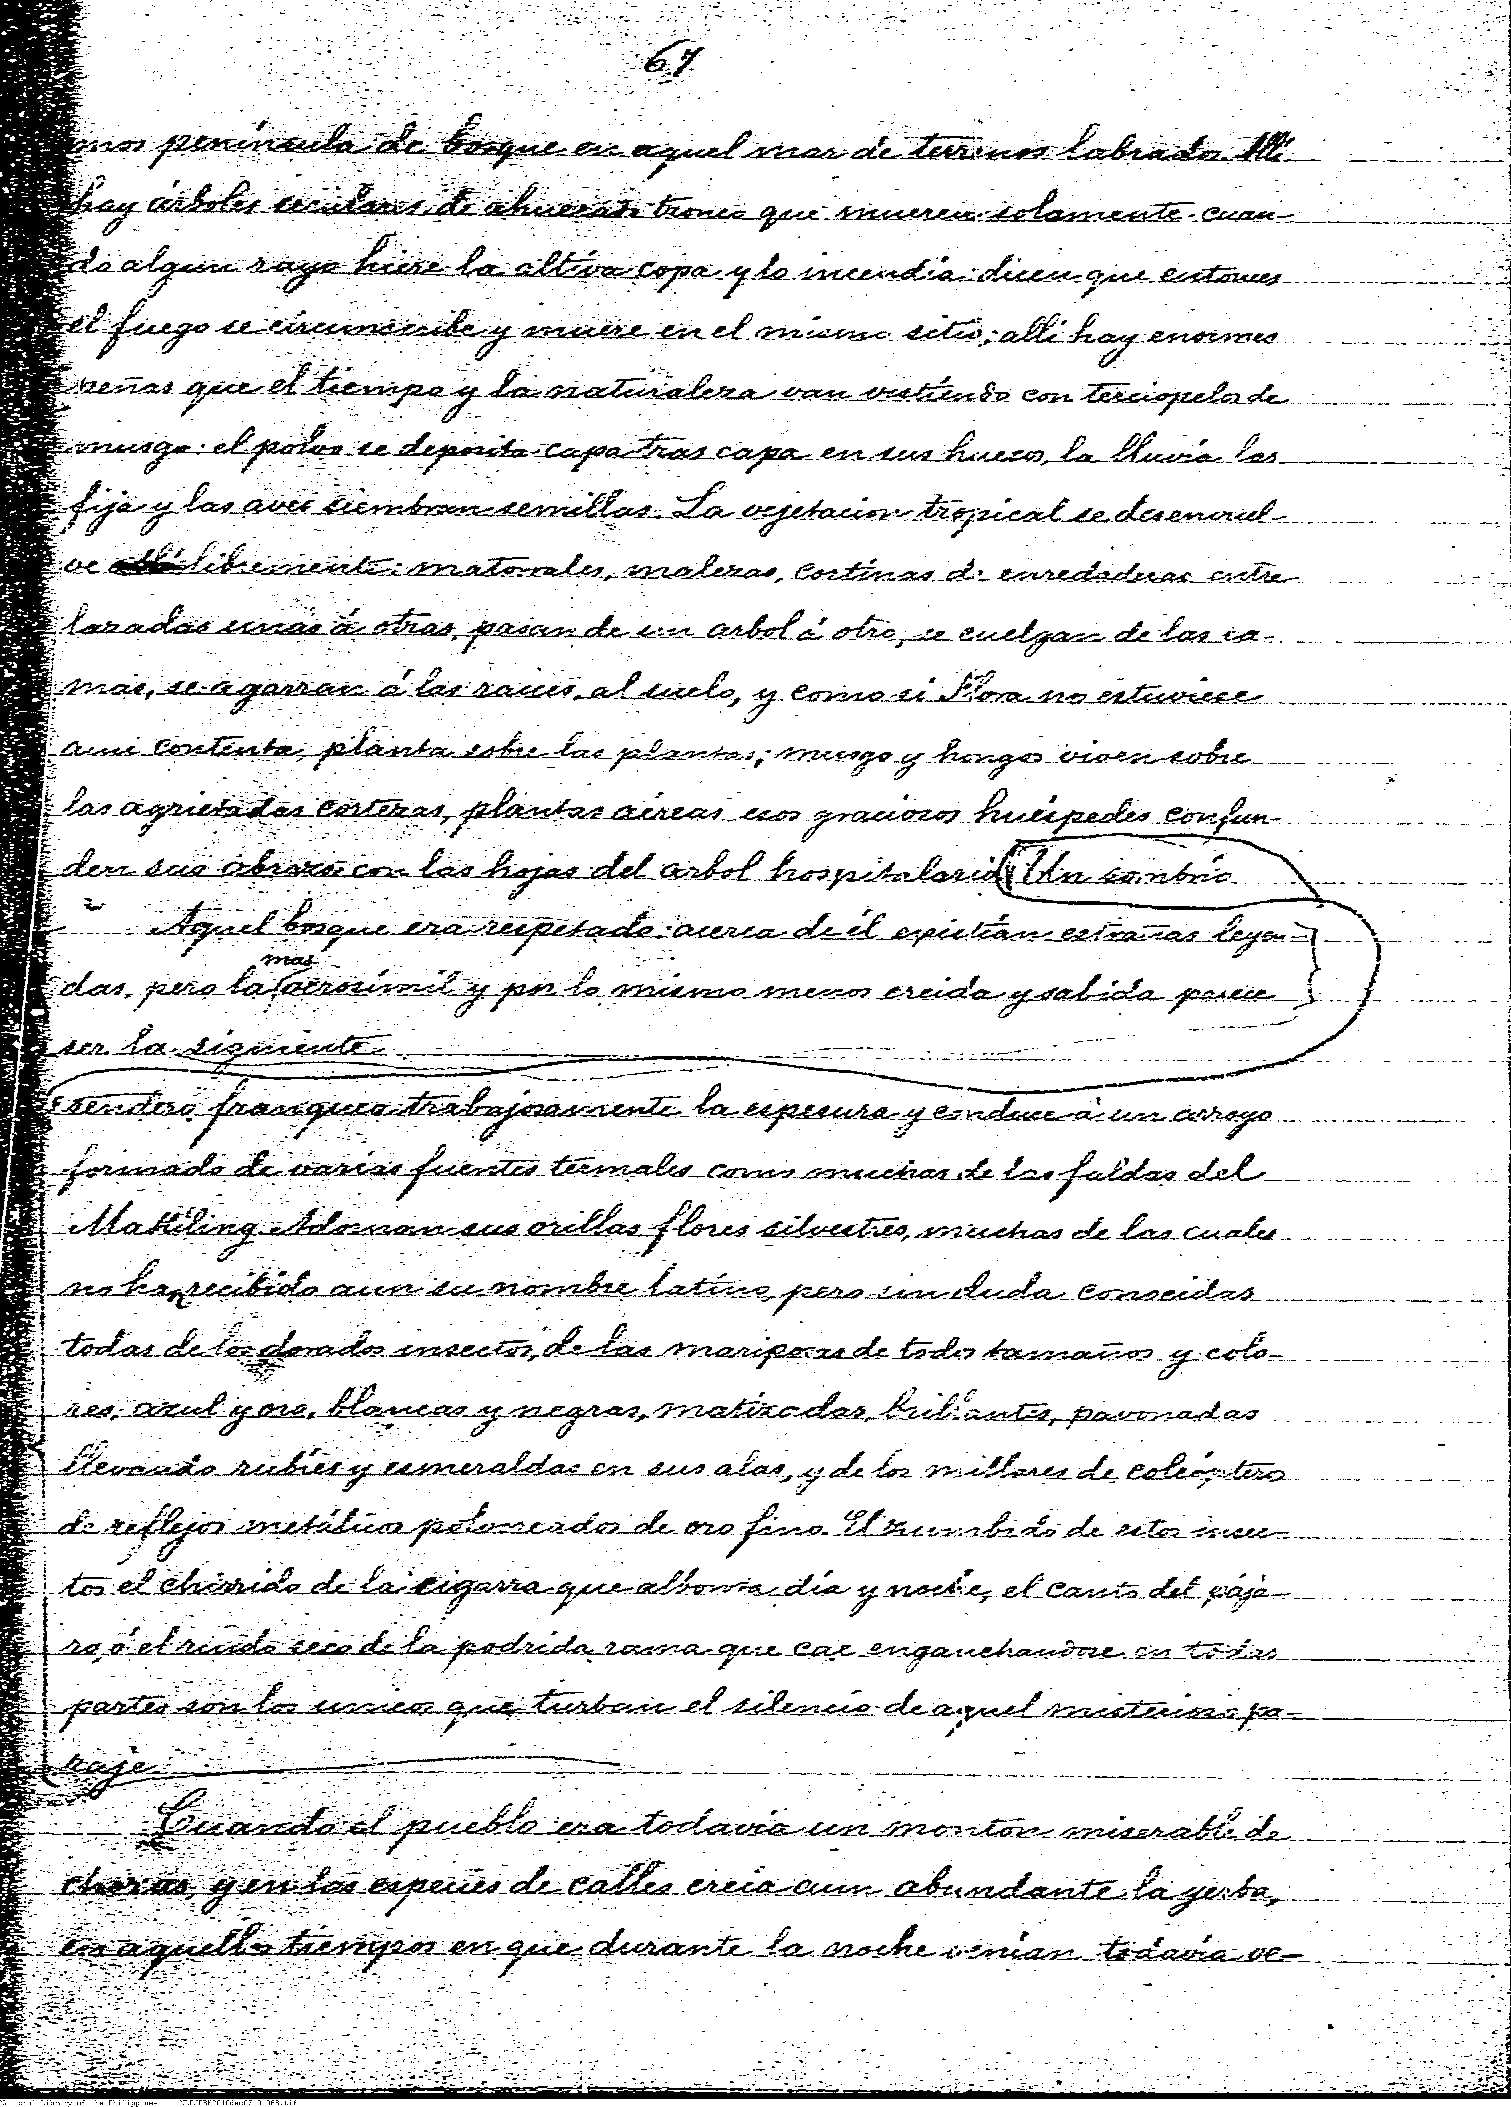 67
mos península de bosque en aquel mar de terrenos labrados. Allí
hay árboles seculares, de ahuecado tronco que mueren solamente cuan-
do algun rayo hiere la altiva copa y lo incendia: dicen que entonces
el fuego se circunscribe y muere en el mismo sitio; allí hay enormes
peñas que el tiempo y la naturaleza van vistiendo con terciopelo de
musgo: el polvo se deposita capa tras capa en sus huecos, la lluvia los
fija y las aves siembran semillas. La vejetacion tropical se desenvuel-
ve libremente: matorrales, malezas, cortinas de enredaderas entre
lazadas unas á otras, pasan de un arbol á otro, se cuelgan de las ra-
mas, se agarran á las raices, al suelo, y como si Flora no estuviese
aun contenta, planta sobre las plantas; musgo y hongos viven sobre
las agrietadas cortezas, plantas aéreas esos graciosos huéspedes confun-
den sus abrazos con las hojas del arbol hospitalario (Un sombrío
Aquel bosque era respetado: acerca de él existían estrañas leyen-
das, pero la mas verosímil y por lo mismo menos creida y sabida parece
ser la siguiente
sendero franquea trabajosamente la espesura y conduce á un arroyo
formado de varias fuentes termales como muchas de las faldas del
Makiling. Adornan sus orillas flores silvestres, muchas de las cuales
no han recibido aun su nombre latino, pero sin duda conocidas
todas de los dorados insectos, de las mariposas de todos tamaños y colo-
res, azul y oro, blancas y negras, matizadas, brillantes, pavonadas
llevando rubíes y esmeraldas en sus alas, y de los millares de coleóptero
de reflejos metálicos polvoreados de oro fino. El zumbido de estos insec-
tos el chirrido de la cigarra que alborota dia y noche, el canto del pája-
ro, ó el ruido seco de la podrida rama que cae enganchandose en todas
partes son los unicos que turban el silencio de aquel misterioso pa-
raje
Cuando el pueblo era todavia un monton miserable de
chozas, y en las especies de calles crecia aun abundante la yerba,
en aquellos tiempos en que durante la noche venian todavia ve-